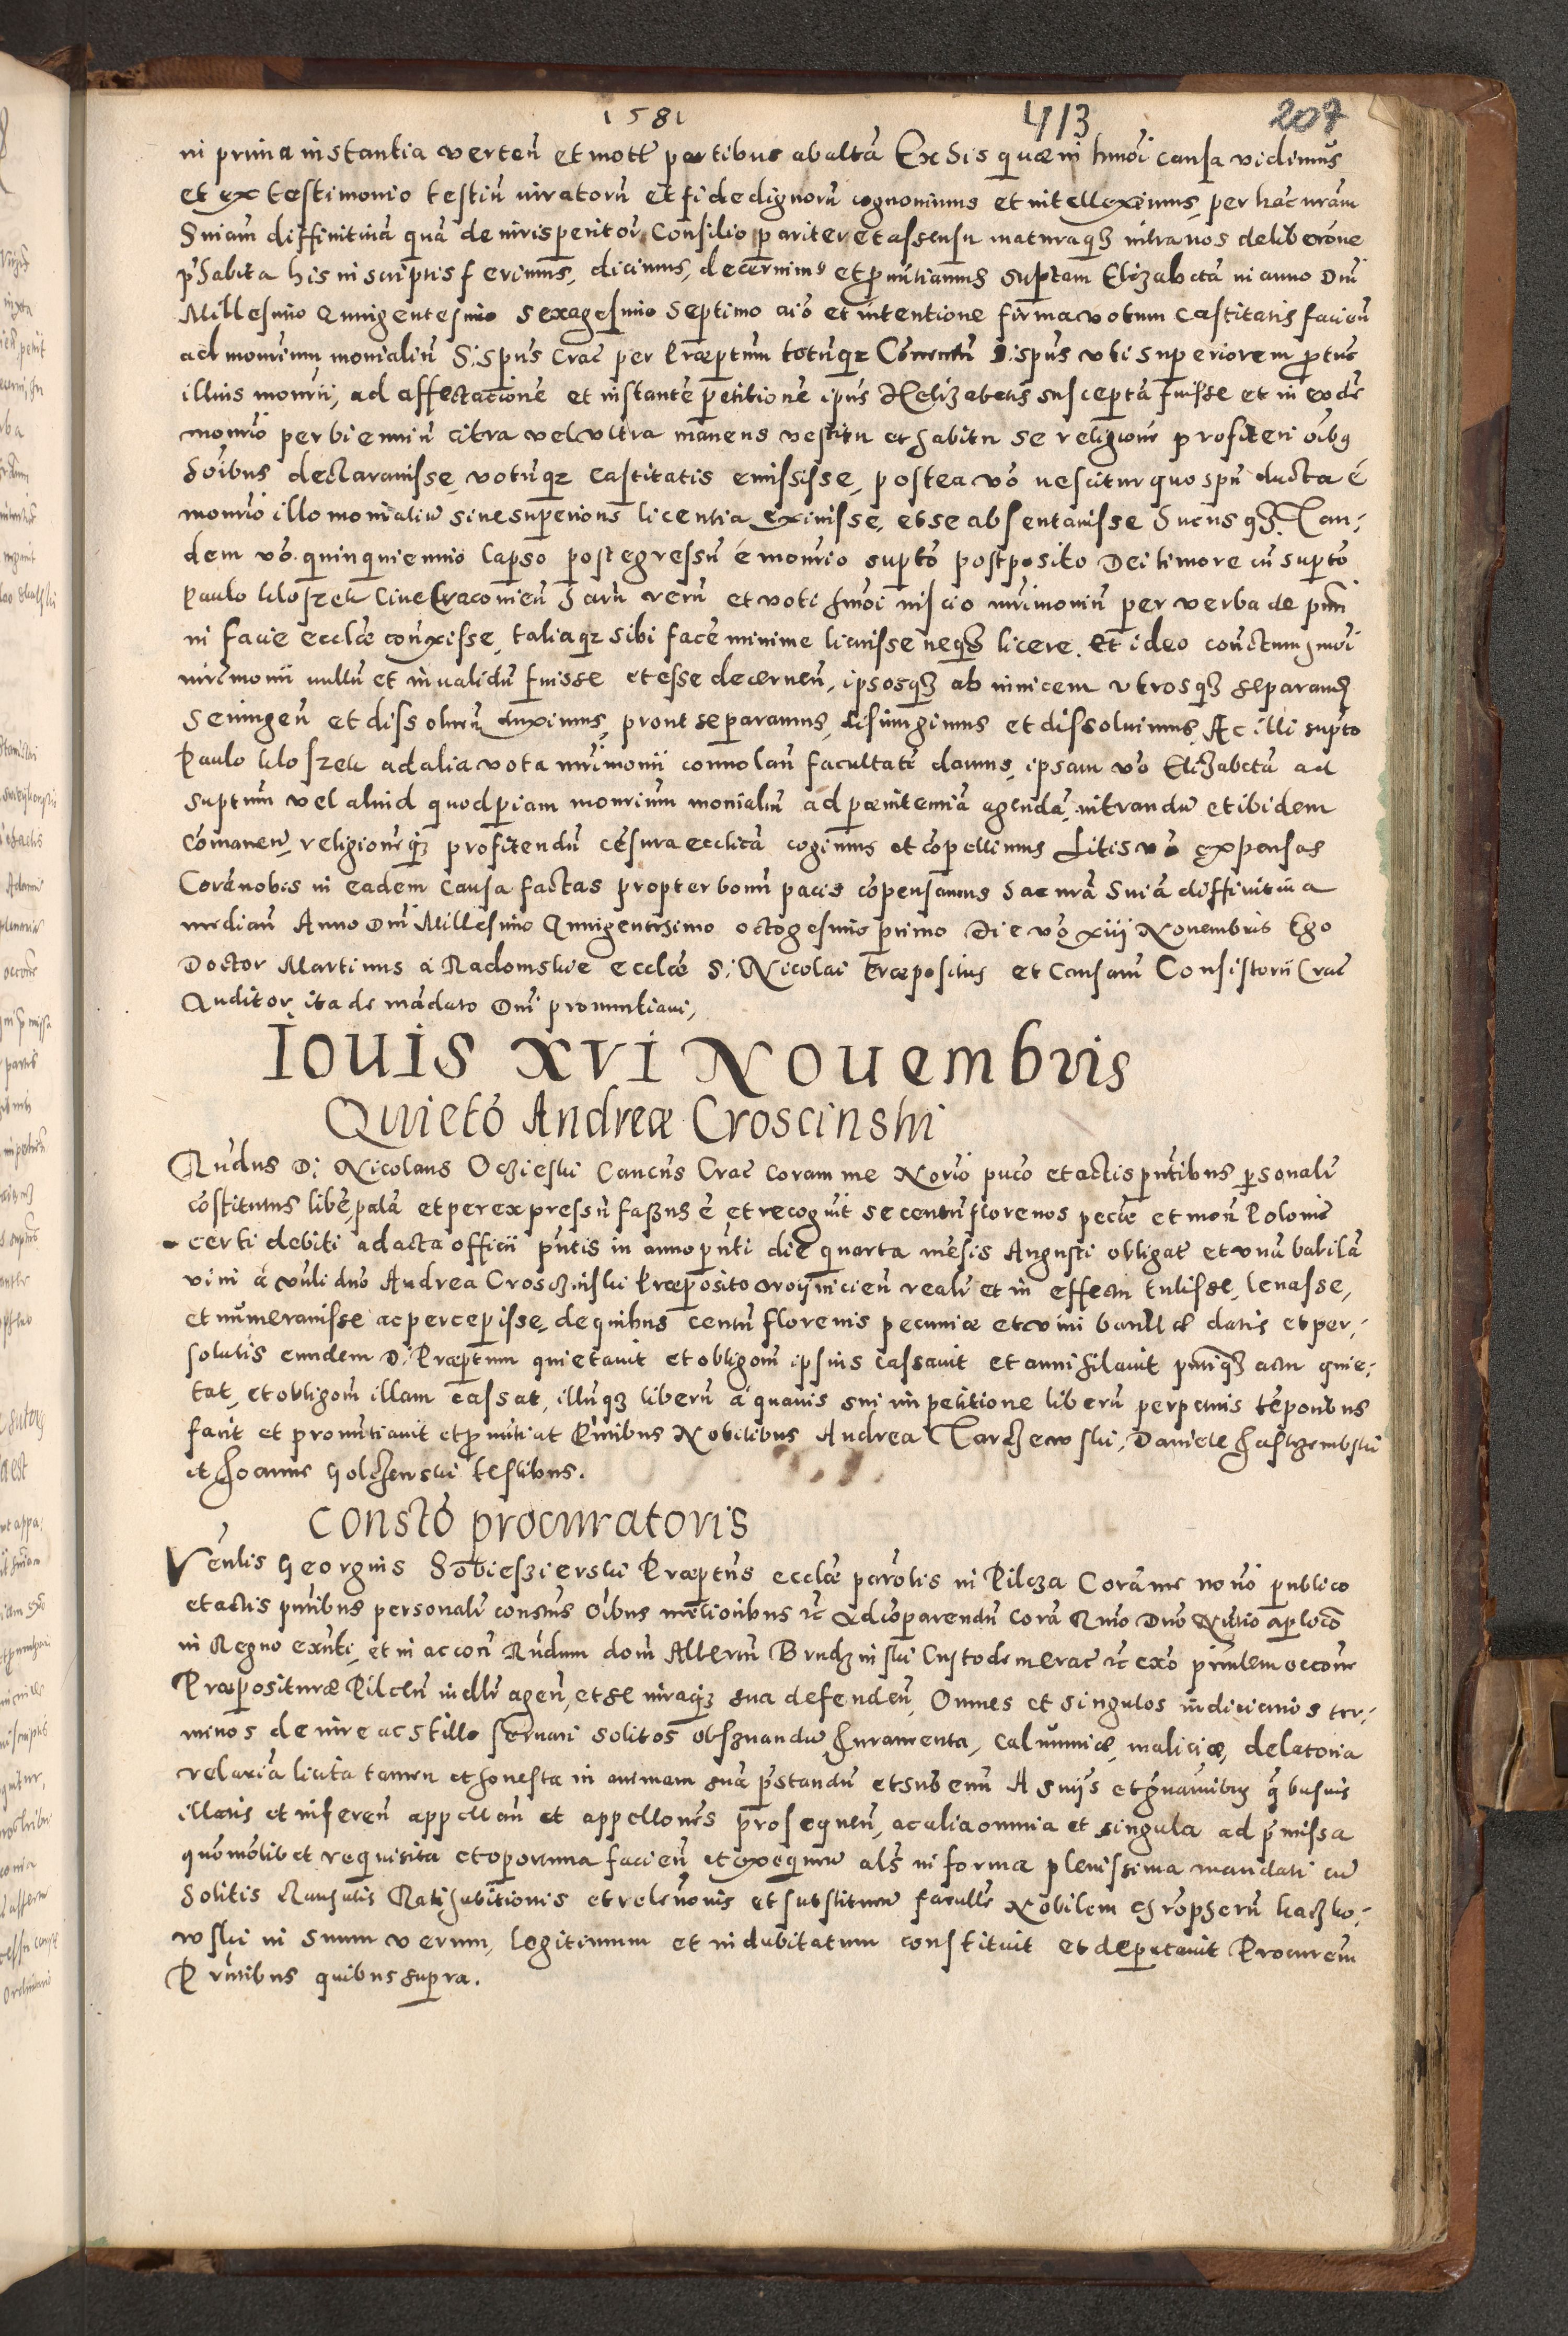 1581 413 207
in prima instantia verteñ et motte partibus ab altã Ex his quae in hmõi causa vidimus
et ex testimonio testiũ iuratorũ et fidedignorũ cognovimus et intelleximus, per hãc nrãm
Sniam diffinitivã quã de iurisperitorũ Consilio pariter et assensu maturaq3 intra nos deliberõne
p̃habita his in scriptis ferimus, dicimus, decernimus et pronũtiamus suptam Elizabetã in anno Dñi
Millesimo Quingentesimo sexagesimo septimo aiõ et intentione firma votum castitatis facieñ
ad monrium monialiũ S: Spũs Crac̃ per Praeptum totũq3 Conventũ S: Spũs vti superiorem protũc
illius monrii, ad affectacionẽ et instantẽ petitionẽ ipius Helizabetis susceptã fuisse et in eodẽ
monrio per bienniũ citra vel vltra manens vestitu et habitu se religionẽ profiteri oibus
hoibus declaravisse, votũq3 castitatis emisisse, postea vo nescitur quo spũ ducta é
monrio illo monialiũ sine superioris licentia exivisse, et se absentavisse hucusq3. Tan-
dem vo. quinquiennio lapso post egressũ é monrio supto postposito Dei timore cũ supto
Paulo Kloszek Cive Cracovieñ harũ rerũ et voti hmõi inscio mrimoniũ per verba de pñti
in facie ecclae conxisse, taliaq3 sibi facẽ minime licuisse neq3 licere. Et ideo contractum hmõi
mrimonii nullũ et invalidũ fuisse et esse decerneñ, ipsosq3 ab invicem vtrosq3 separand
Seiungeñ et dissolueñ duximus, prout separamus, disiungimus et dissoluimus, Ac illi supto
Paulo Kloszek ad alia vota mrimonii convolañ facultatẽ damus, ipsam vo Elizabetã ad
suptum vel aliud quodpiam monrium monialiũ ad paenitentiã agendã intrandũ et ibidem
cõmaneñ, religionẽq3 profitendũ cẽsura ecclicã cogimus et cõpellimus Litis vo expensas
Corã nobis in eadem causa factas propter bonũ pacis cõpensamus hac nrã Sniã diffinitiva
mediañ Anno Dñi Millesimo Quingentesimo octogesimo primo Die vo xiij Novembris Ego
Doctor Martinus à Radomskie ecclae S: Nicolai Praepositus et Causarũ Consistorii Crac̃
Auditor ita de mãdato Dñi pronuntiavi,
Iovis XVI Novembris
Quietõ Andreae Croscinski
Rũdus D: Nicolaus Oczieski Cancus Crac̃ coram me Norio puco et actis pñtibus personalr
cõstitutus libẽ, palã et per expressũ fassus ẽ et recognvit se centũ florenos pecuẽ et moñ Polonic̃
certi debiti ad acta officii pñtis in anno pñti die quarta mẽsis Augusti obligat̃ et vnã barilã
vini á vñli dño Andrea Crosczinski Praeposito Woynicieñ realr et in effectu tulisse, levasse,
et numeravisse ac percepisse, de quibus centũ florenis pecuniae et vini barila datis et per-
solutis eundem D: Praeptum quietavit et obligom ipsius cassavit et annihilavit pñtiq3 actu quie-
tat, et obligom illam cassat, illũq3 liberũ á quavis sui impetitione liberũ perpetuis tẽporibus
facit et pronũtiavit et pronũtiat Pñtibus Nobilibus Andrea Tarczewski, Daniele Jastrzembski
et Joanne Golczewski testibus.
Constõ procuratoris
Veñlis Georgius Sobieszierski Praeptus ecclae parolis in Pilcza Corã me norio publico
et actis pñtibus personalr constus Oibus melioribus &c Ad cõparendũ corã Rmo Dno Nũtio aplico
in Regno exñti, et in accoñ Rũdum dom Albertũ Brudzinski Custodem Crac̃ &c exõ
Praepositurae Pilceñ in dlr ageñ, et se iuraq3 sua defendeñ, Omnes et singulos iudiciarios ter-
minos de iure ac stillo servari solitos obseruandũ Juramenta, calumniae, maliciae, delatoria
vel alia licita tamen et honesta in animam suã p̃standũ et subeuñ A sniis et gravaminibus quibusuis
illatis et infereñ appellañ et appellones prosequeñ, ac alia omnia et singula ad p̃missa
quomolibet requisita et oportuna facieñ et exequeñ als in forma plenissima mandati cũ
Solitis clausulis Ratihabitionis et relevonis et substituenẽ facultẽ Nobilem Chrophorũ Kaczko-
wski in suum verum, legitimum et indubitatum constituit et deputavit Procurem
Pñtibus quibus supra.